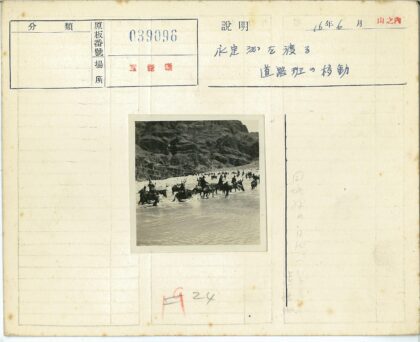 分類
原板番號
039096
場所
説明
16年6月
山之内
永定河を渡る
道路班の移動
24